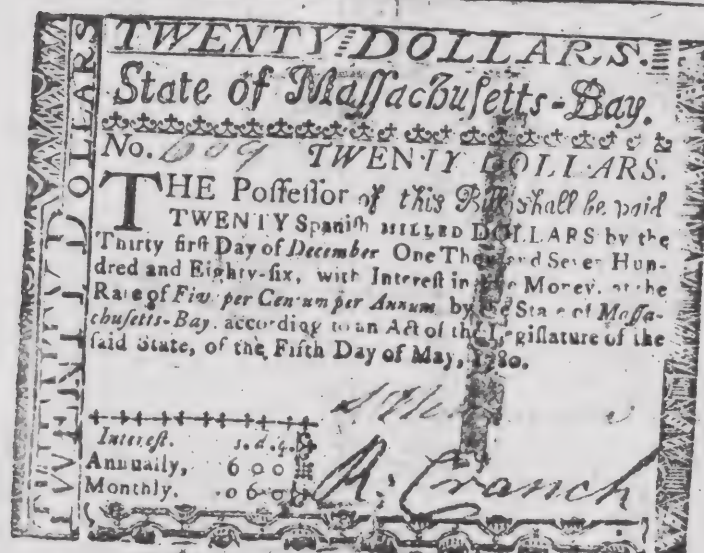 TWENTY DOLLARS.
TWENTY DOLLARS
State of Maſſachuſetts-Bay.
No. 609 TWENTY DOLLARS.
THE Poſſeſſor of this Bill ſhall be paid
TWENTY Spaniſh MILLED DOLLARS by the
Thirty firſt Day of December One Thouſand Seven Hun-
dred and Eighty-ſix, with Intereſt in like Money, at the
Rate of Five per Centum per Annum, by the State of Maſſa-
chuſetts-Bay, according to an Act of the Legiſlature of the
ſaid State, of the Fifth Day of May, 1780.
Intereſt. s. d. q.
Annually, 6 0 0
Monthly. 0 6 0
R. Cranch